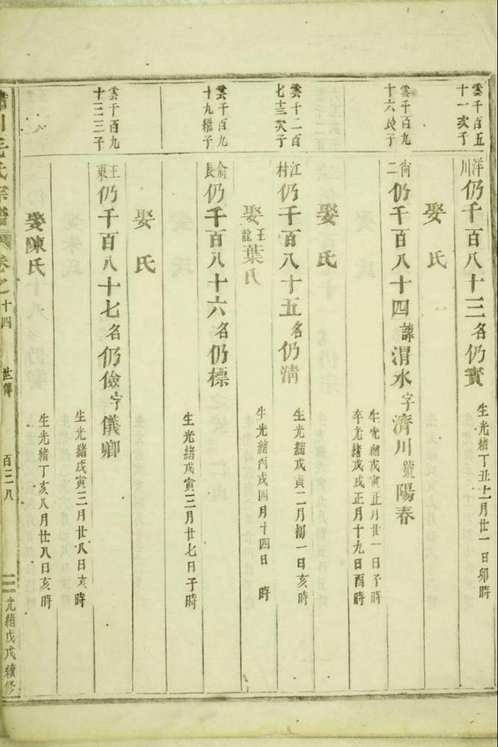 雲千百五
十一次子
洋川仍千百八十三名仍實
生光緒丁丑上月廿一日卯時
娶 氏
雲千百九
十六長子
衕二仍千百八十四諱渭水字濟川號陽春
生光緒戊寅正月廿一日子時
卒光緒戊戌正月十九日酉時
娶 氏
雲千二百
七十三次子
江村仍千百八十五名仍清
生光緒戊寅二月初一日亥時
娶王諠葉氏
生光緒丙戌四月十四日 時
雲千百九
十九繼子
俞長仍千百八十六名仍標
生光緒戊寅三月廿七日子時
娶 氏
雲千百九
十三三子
王東仍千百八十七名仍儉字儀卿
生光緒戊寅三月廿八日亥時
娶陳氏
生光緒丁亥八月廿八日亥時
川毛氏宗譜 卷之十四 世傳 百二八 光緒戊戌續修